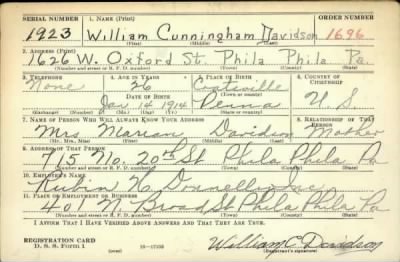 SERIAL NUMBER 1. NAME (Print) ORDER NUMBER
1923 William Cunningham Davidson 1696
(First) (Middle) (Last)
2. ADDRESS (Print)
1626 W. Oxford St. Phila Phila Pa.
(Number and street or R. F. D. number) (Town) (County) (State)
3. TELEPHONE 4. AGE IN YEARS 5. PLACE OF BIRTH 6. COUNTRY OF CITIZENSHIP
None 26 Coatesville
DATE OF BIRTH (Town or county)
Jan 14 1914 Penna U S.
(Exchange) (Number) (Mo.) (Day) (Yr.) (State or country)
7. NAME OF PERSON WHO WILL ALWAYS KNOW YOUR ADDRESS 8. RELATIONSHIP OF THAT PERSON
Mrs Marian Davidson Mother
(Mr., Mrs., Miss) (First) (Middle) (Last)
9. ADDRESS OF THAT PERSON
715 No. 20th St Phila Phila Pa
(Number and street or R. F. D. number) (Town) (County) (State)
10. EMPLOYER'S NAME
Rubin H Donnelley Inc
11. PLACE OF EMPLOYMENT OR BUSINESS
401 N. Broad St Phila Phila Pa
(Number and street or R. F. D. number) (Town) (County) (State)
I AFFIRM THAT I HAVE VERIFIED ABOVE ANSWERS AND THAT THEY ARE TRUE.
REGISTRATION CARD
D. S. S. Form 1 (over) 16-17105 William C Davidson
(Registrant's signature)